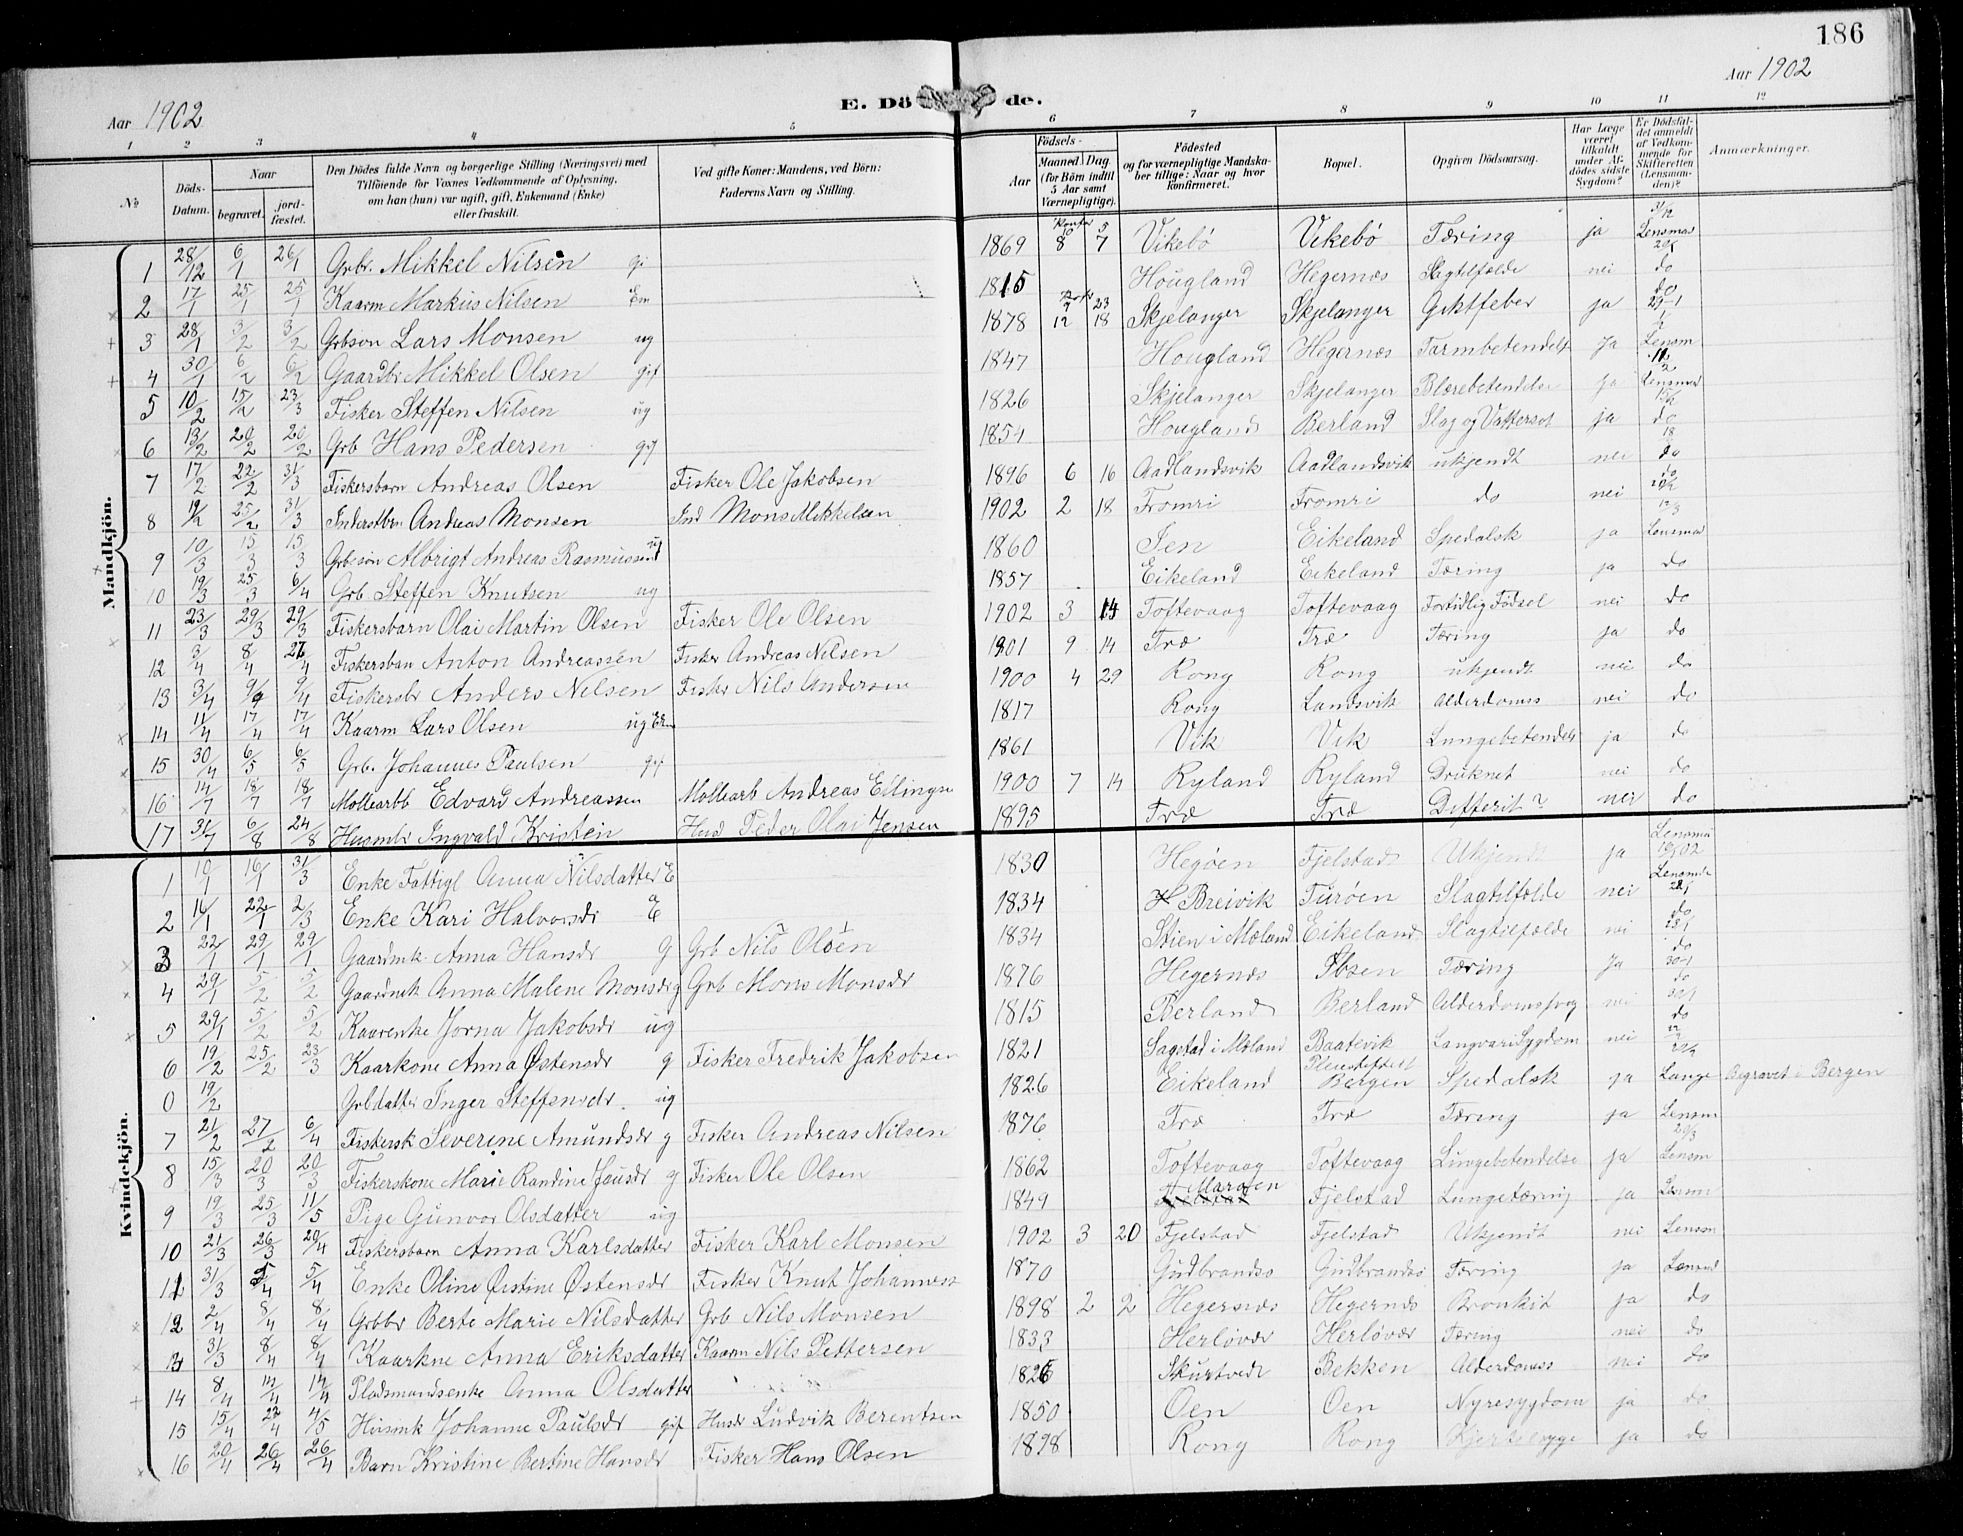 186
Aar 1902
Aar 1902
E. Dö de.
1 2 3 4 5 6 7 8 9 10 11 12
No
Döds-Datum.
Naar
begravet.
jord-fæstet.
Den Dödes fulde Navn og borgerlige Stilling (Næringsvei) med
Tilföiende for Voxnes Vedkommende af Oplysning,
om han (hun) var ugift, gift, Enkemand (Enke)
eller fraskilt.
Ved gifte Koner: Mandens, ved Börn:
Faderens Navn og Stilling.
Födsels-
Aar
Maaned. Dag.
(for Börn indtil
5 Aar samt
Værnepligtige).
Födested
og for værnepligtige Mandska-
ber tillige: Naar og hvor
konfirmeret.
Bopæl.
Opgiven Dödsaarsag.
Har Læge
været
tilkaldt
under Af-
dödes sidste
Sygdom?
Er Dödsfal-
det anmeldt
af Vedkom-
mende for
Skifteretten
(Lensman-
den)?
Anmærkninger.
Mandkjön.
1 28/12 6/1 26/1 Grbr. Mikkel Nilsen gi 1869 8 7 Vikebö Vikebö Tæring ja Lensmad
2 17/1 25/1 25/1 Kaarm Markus Nilsen Em 1815 Hougland Hegernæs Slagtilfælde nei do
3 28/1 3/2 3/2 Grbson Lars Monsen ug 1878 12 18 Skjelanger Skjelanger Giktfeber ja do
4 30/1 6/2 6/2 Gaardbr Mikkel Olsen gif 1847 Hougland Hegernæs Tarmbetendels ja Lensm
5 10/2 15/2 23/3 Fisker Steffen Nilsen ug 1826 Skjelanger Skjelanger Blærebetendelse ja Lensmad
6 13/2 20/2 20/2 Grb Hans Pedersen gif 1854 Hougland Berland Slag og Vattersot ja do
7 17/2 22/2 31/3 Fiskersbarn Andreas Olsen Fisker Ole Jakobsen 1896 6 16 Aadlandsvik Aadlandsvik ukjendt nei do
8 19/2 25/2 31/3 Inderstbrn Andreas Monsen Ind Mons Mikkelsen 1902 2 18 Fromri Fromri do nei do
9 10/3 15/3 15/3 Grbsson Albrigt Andreas Rasmussen ug 1860 Sen Eikeland Spedalsk ja Lensmad
10 19/3 25/3 6/4 Grb. Steffen Knutsen ug 1857 Eikeland Eikeland Tæring ja do
11 23/3 29/3 29/3 Fiskersbarn Olai Martin Olsen Fisker Ole Olsen 1902 3 14 Toftevaag Toftevaag Fortidlig Födsel nei do
12 3/4 8/4 27/4 Fiskersban Anton Andreassen Fisker Andreas Nilsen 1901 9 14 Træ Træ Tæring ja do
13 3/4 9/4 9/4 Fiskersbr Anders Nilsen Fisker Nils Andersen 1900 4 29 Rong Rong ukjendt nei do
14 11/4 17/4 17/4 Kaarm Lars Olsen ug Em 1817 Rong Landsvik Alderdomss nei do
15 30/4 6/5 6/5 Grb. Johannes Paulsen gif 1861 Vik Vik Lungebetendels ja do
16 14/7 18/7 18/7 Möllearbb Edvard Andreassen Möllearb Andreas Ellingsn 1900 7 14 Ryland Ryland Druknet nei do
17 31/7 6/8 24/8 Husmbr Ingvald Kristen Husd Peder Olai Jensen 1895 Træ Træ Differit? nei do
Kvindekjön.
1 10/1 16/1 31/3 Enke Fattigl Anna Nilsdatter E 1830 Hegöen Fjelstad Ukjendt ja Lensmd
2 16/1 22/1 2/3 Enke Kari Halvorsdr E 1834 Breivik Turöen Slagtilfælde nei Lensmd
3 22/1 29/1 29/1 Gaardmk. Anna Hansdr g Grb Nils Olsen 1834 Stien i Mæland Eikeland Slagtilfælde nei do
4 29/1 5/2 5/2 Gaardmk Anna Malene Monsdr g Grb Mons Monsdr 1876 Hegernæs Ibsen Tæring ja do
5 29/1 5/2 5/2 Kaarenke Jorna Jakobsdr ug 1815 Berland Berland Alderdomssvag nei do
6 19/2 25/2 23/3 Kaarkone Anna Østensdr g Fisker Fredrik Jakobsen 1821 Sagstad i Mæland Baatevik Langvari Sygdom nei
0 19/2 Grbdatter Inger Steffensdr. ug 1826 Eikeland Pleiestiftelse Bergen Spedalsk ja Lange Begravet i Bergen
7 21/2 27/2 6/4 Fiskersk Severine Amundsdr g Fisker Andreas Nilsen 1876 Træ Træ Tæring ja Lensm
8 15/3 20/3 20/3 Fiskerskone Marie Randine Jansdr g Fisker Ole Olsen 1862 Toftevaag Toftevaag Lungebetendelse ja Lensm
9 19/3 25/3 11/5 Pige Gunvor Olsdatter ug 1849 Marøen Fjelstad Lungetæring ja Lensm
10 21/3 26/3 20/4 Fiskersbarn Anna Karlsdatter Fisker Karl Monsen 1902 3 20 Fjelstad Fjelstad Ukjendt nei Lensm
11 31/3 5/4 5/4 Enke Oline Østine Østensdr Fisker Knut Johanness 1870 Gudbrandsö Gudbrandsö Tæring ja Lensmd
12 2/4 8/4 8/4 Grbbr Berte Marie Nilsdatter Grb Nils Monsen 1898 2 2 Hegernæs Hegernæs Bronkit ja do
13 31/3 8/4 8/4 Kaarkne Anna Eriksdatter Kaarm Nils Pettersen 1833 Herlövær Herlövær Tæring nei do
14 8/4 14/4 14/4 Pladsmandsenke Anna Olsdatter 1826 Skurtvedt Bekken Alderdomss nei do
15 15/4 22/4 4/5 Husmk Johanne Paulsdr gif Husdr Ludvik Berentsen 1850 Oen Oen Nyresygdom ja do
16 20/4 26/4 26/4 Barn Kristine Bertine Hansdr Fisker Hans Olsen 1898 Rong Rong Kjertelsyge ja do